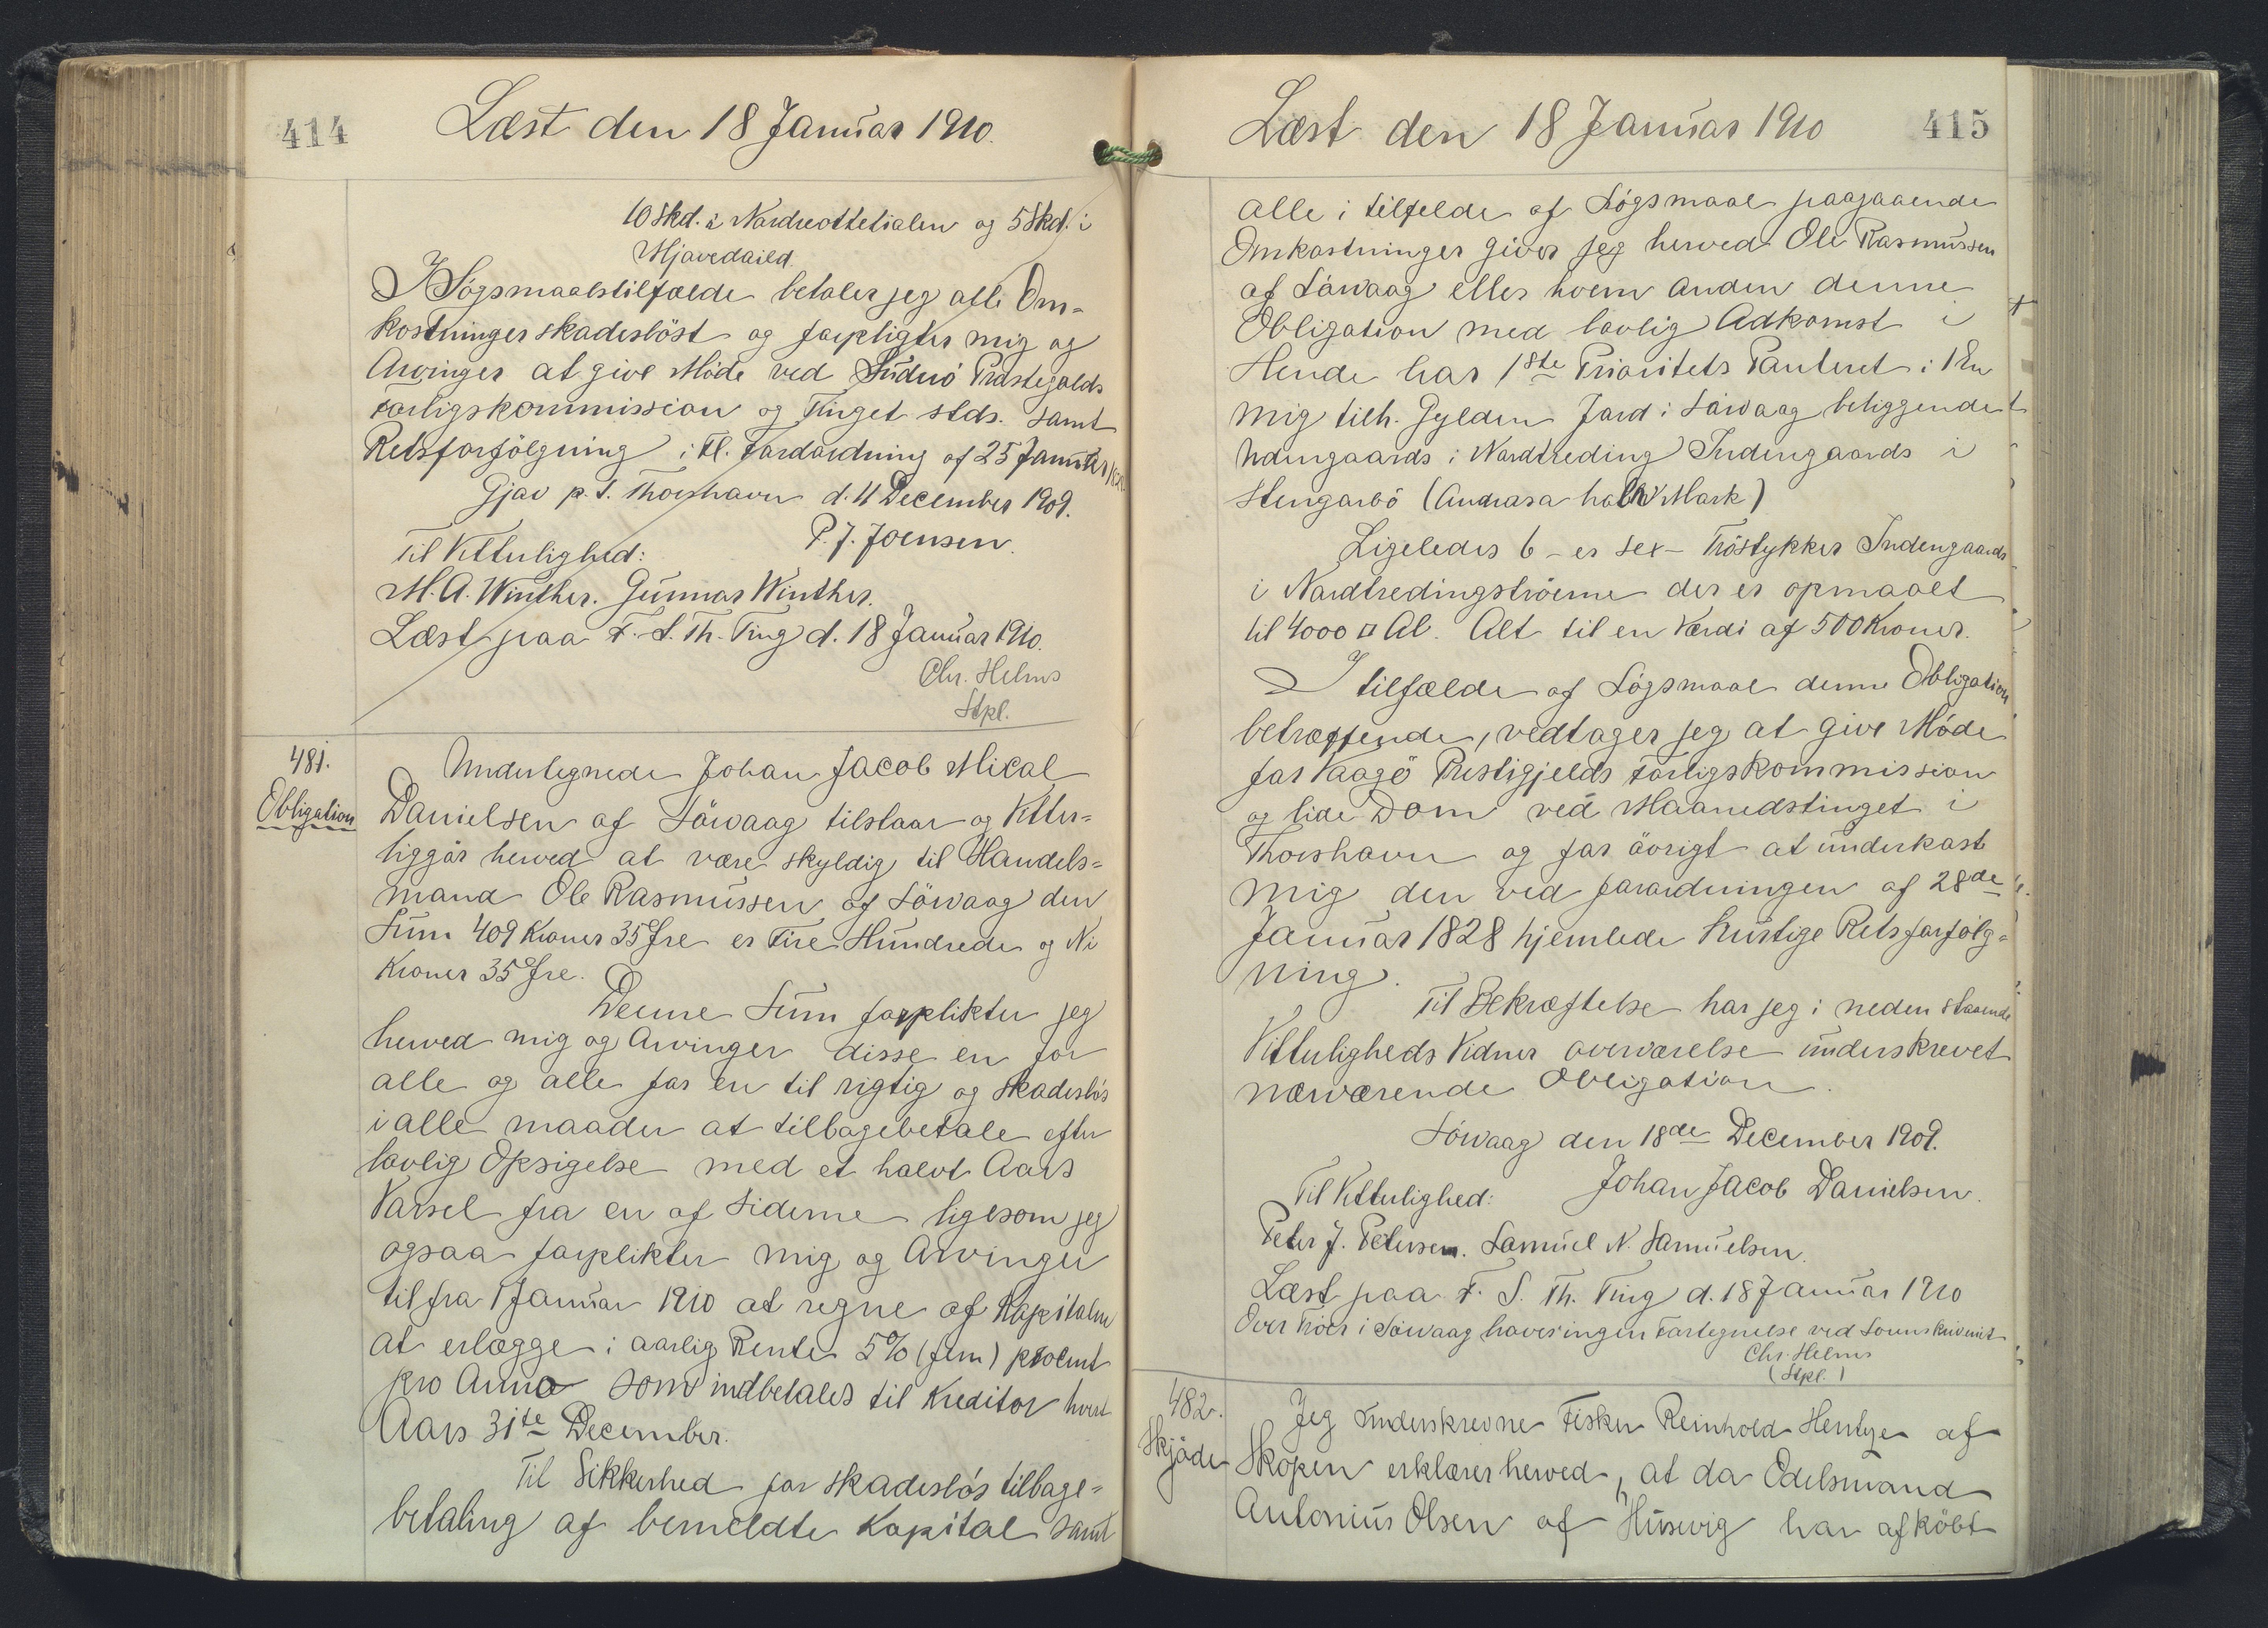 414
Læst den 18 Januar 1910.
10 Skd. i Nordreottetialen og 5 Skd. i
Mjavedaild.
I Sögsmaalstilfælde betaler jeg alle Om-
kostninger skadeslöst og forpligter mig og
Arvinger at give Möde ved Suderö Præstegjælds
Forligskommission og Tinget stds. samt
Retsforfölgning i fl. Forordning af 25 Januar 1828
Gjov p. t. Thorshavn d. 11 December 1909.
P. J. Joensen.
Til Vitterlighed:
M. A. Winther. Gunnar Winther.
Læst paa F. S. Th. Ting d. 18 Januar 1910.
Chr. Helms
Stpl.
481.
Obligation
Undertegnede Johan Jacob Mical
Danielsen af Sörvaag tilstaar og Vitter-
liggör herved at være skyldig til Handels-
mand Ole Rasmussen af Sörvaag den
Sum 409 Kroner 35 Øre er Fire Hundrede og Ni
Kroner 35 Øre.
Denne Sum forplikter jeg
herved mig og Arvinger disse en for
alle og alle for en til rigtig og skadeslös
i alle maader at tilbagebetale efter
lovlig Opsigelse med et halvt Aars
Varsel fra en af Siderne ligesom jeg
ogsaa forplikter mig og Arvinger
til fra 1 Januar 1910 at regne af Kapitalen
at erlægge i aarlig Rente 5% (fem) procent
pro Anno som indbetales til Kreditor hvert
Aars 31te December.
Til Sikkerhed for skadeslös tilbage-
betaling af bemeldte Kapital samt
Læst den 18 Januar 1910
415
alle i tilfelde af Sögsmaal paagaaende
Omkostninger giver jeg herved Ole Rasmussen
af Sörvaag eller hvem anden denne
Obligation med lovlig Adkomst i
Hende har 1ste Prioritets Panteret i 1 En
mig tilh. Gylden Jord i Sörvaag beliggende
Udengaards i Nordtreding Indengaards i
Stengarbö (Andrasa halv Mark)
Ligeledes 6 - er sex - Tröstykker Indengaards
i Nordtredingströerne der er opmaalt
til 4000 □ Al. Alt til en Værdi af 500 Kroner.
I tilfælde af Sögsmaal denne Obligation
betræffende, vedtager jeg at give Möde
for Vaagö Prestigjelds Forligskommission
og lide Dom ved Maanedstinget i
Thorshavn og for övrigt at underkaste
mig den ved forordningen af 28de
Januar 1828 hjemlede hurtige Retsforfölg-
ning.
Til Bekræftelse har jeg i neden staaende
Vitterligheds Vidners overværelse underskrevet
nærværende Obligation.
Sörvaag den 18de December 1909.
Johan Jacob Danielsen.
Til Vitterlighed:
Peter J. Petersen. Samuel N. Samuelsen.
Læst paa F. S. Th. Ting d. 18 Januar 1910
Over Tröer i Sörvaag haves ingen Fortegnelse ved Sorenskriveriet
Chr. Helms
(Stpl.)
482.
Skjöde
Jeg Underskrevne Fisker Reinhold Hentze af
Skopen erklærer herved, at da Odelsmand
Antonius Olsen af Husevig har afköbt